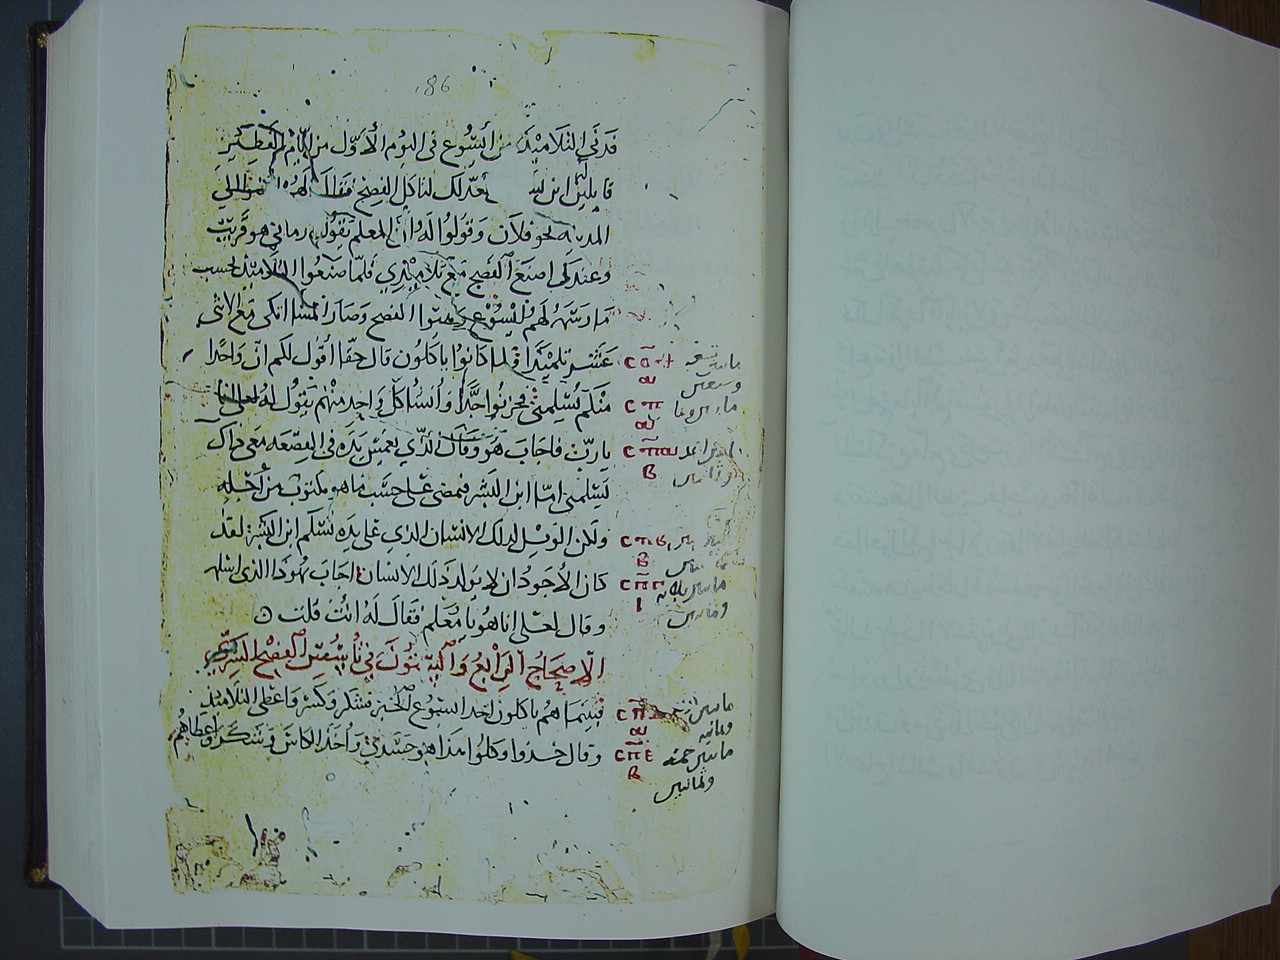 86
فدني التلاميذ من ايسوع في اليوم الاول من ايام الفطير
قايلين اين نعد لك لتاكل الفصح فقال لهم امضوا الي
المدينه نحو فلان وقولوا له ان المعلم يقول زماني هو قريب
وعندك اصنع الفصح مع تلاميذي فلما صنعوا التلاميذ بحسب
ما رسم لهم ايسوع وهيوا الفصح وصار المسا اتكى مع الاثنى
عشر تلميذا فلما كانوا ياكلون قال حقا اقول لكم ان واحدا
منكم يسلمني فحزنوا جدا وانشا كل واحد منهم يقول له لعلي انا
يا رب فاجاب هو وقال الذي يغمس يده في القصعه معي ذاك
يسلمني اما ابن البشر فيمضي على حسب ما هو مكتوب من اجله
ولكن الويل لذلك الانسان الذي على يده يسلم ابن البشر لقد
كان الاجود ان لا يولد ذلك الانسان اجاب يهودا الذي اسلمه
وقال لعلي انا هو يا معلم فقال له انت قلت
الاصحاح الرابع والستون في تاسيس الفصح السري
فبينما هم ياكلون اخذ ايسوع الخبز فشكر وكسر واعطى التلاميذ
وقال خذوا وكلوا هذا هو جسدي واخذ الكاس وشكر واعطاهم
ⲥⲡ
ⲥⲡⲁ
ⲃ
ⲥⲡⲃ
ⲃ
ⲥⲡⲅ
ⲓ
ⲥⲡⲉ
ⲃ
مايتين خمسه
وثمانين